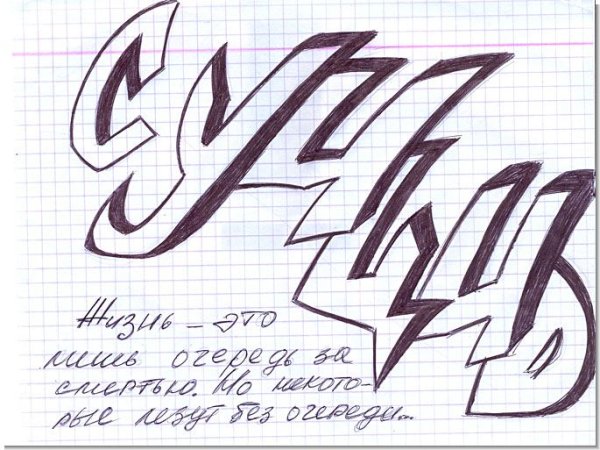 СУИЦИД
Жизнь – это
лишь очередь за
смертью. Но некото-
рые лезут без очереди...